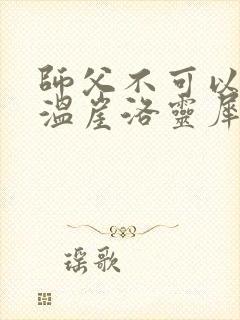 師父不可以
溫崖洛靈犀
瑶歌